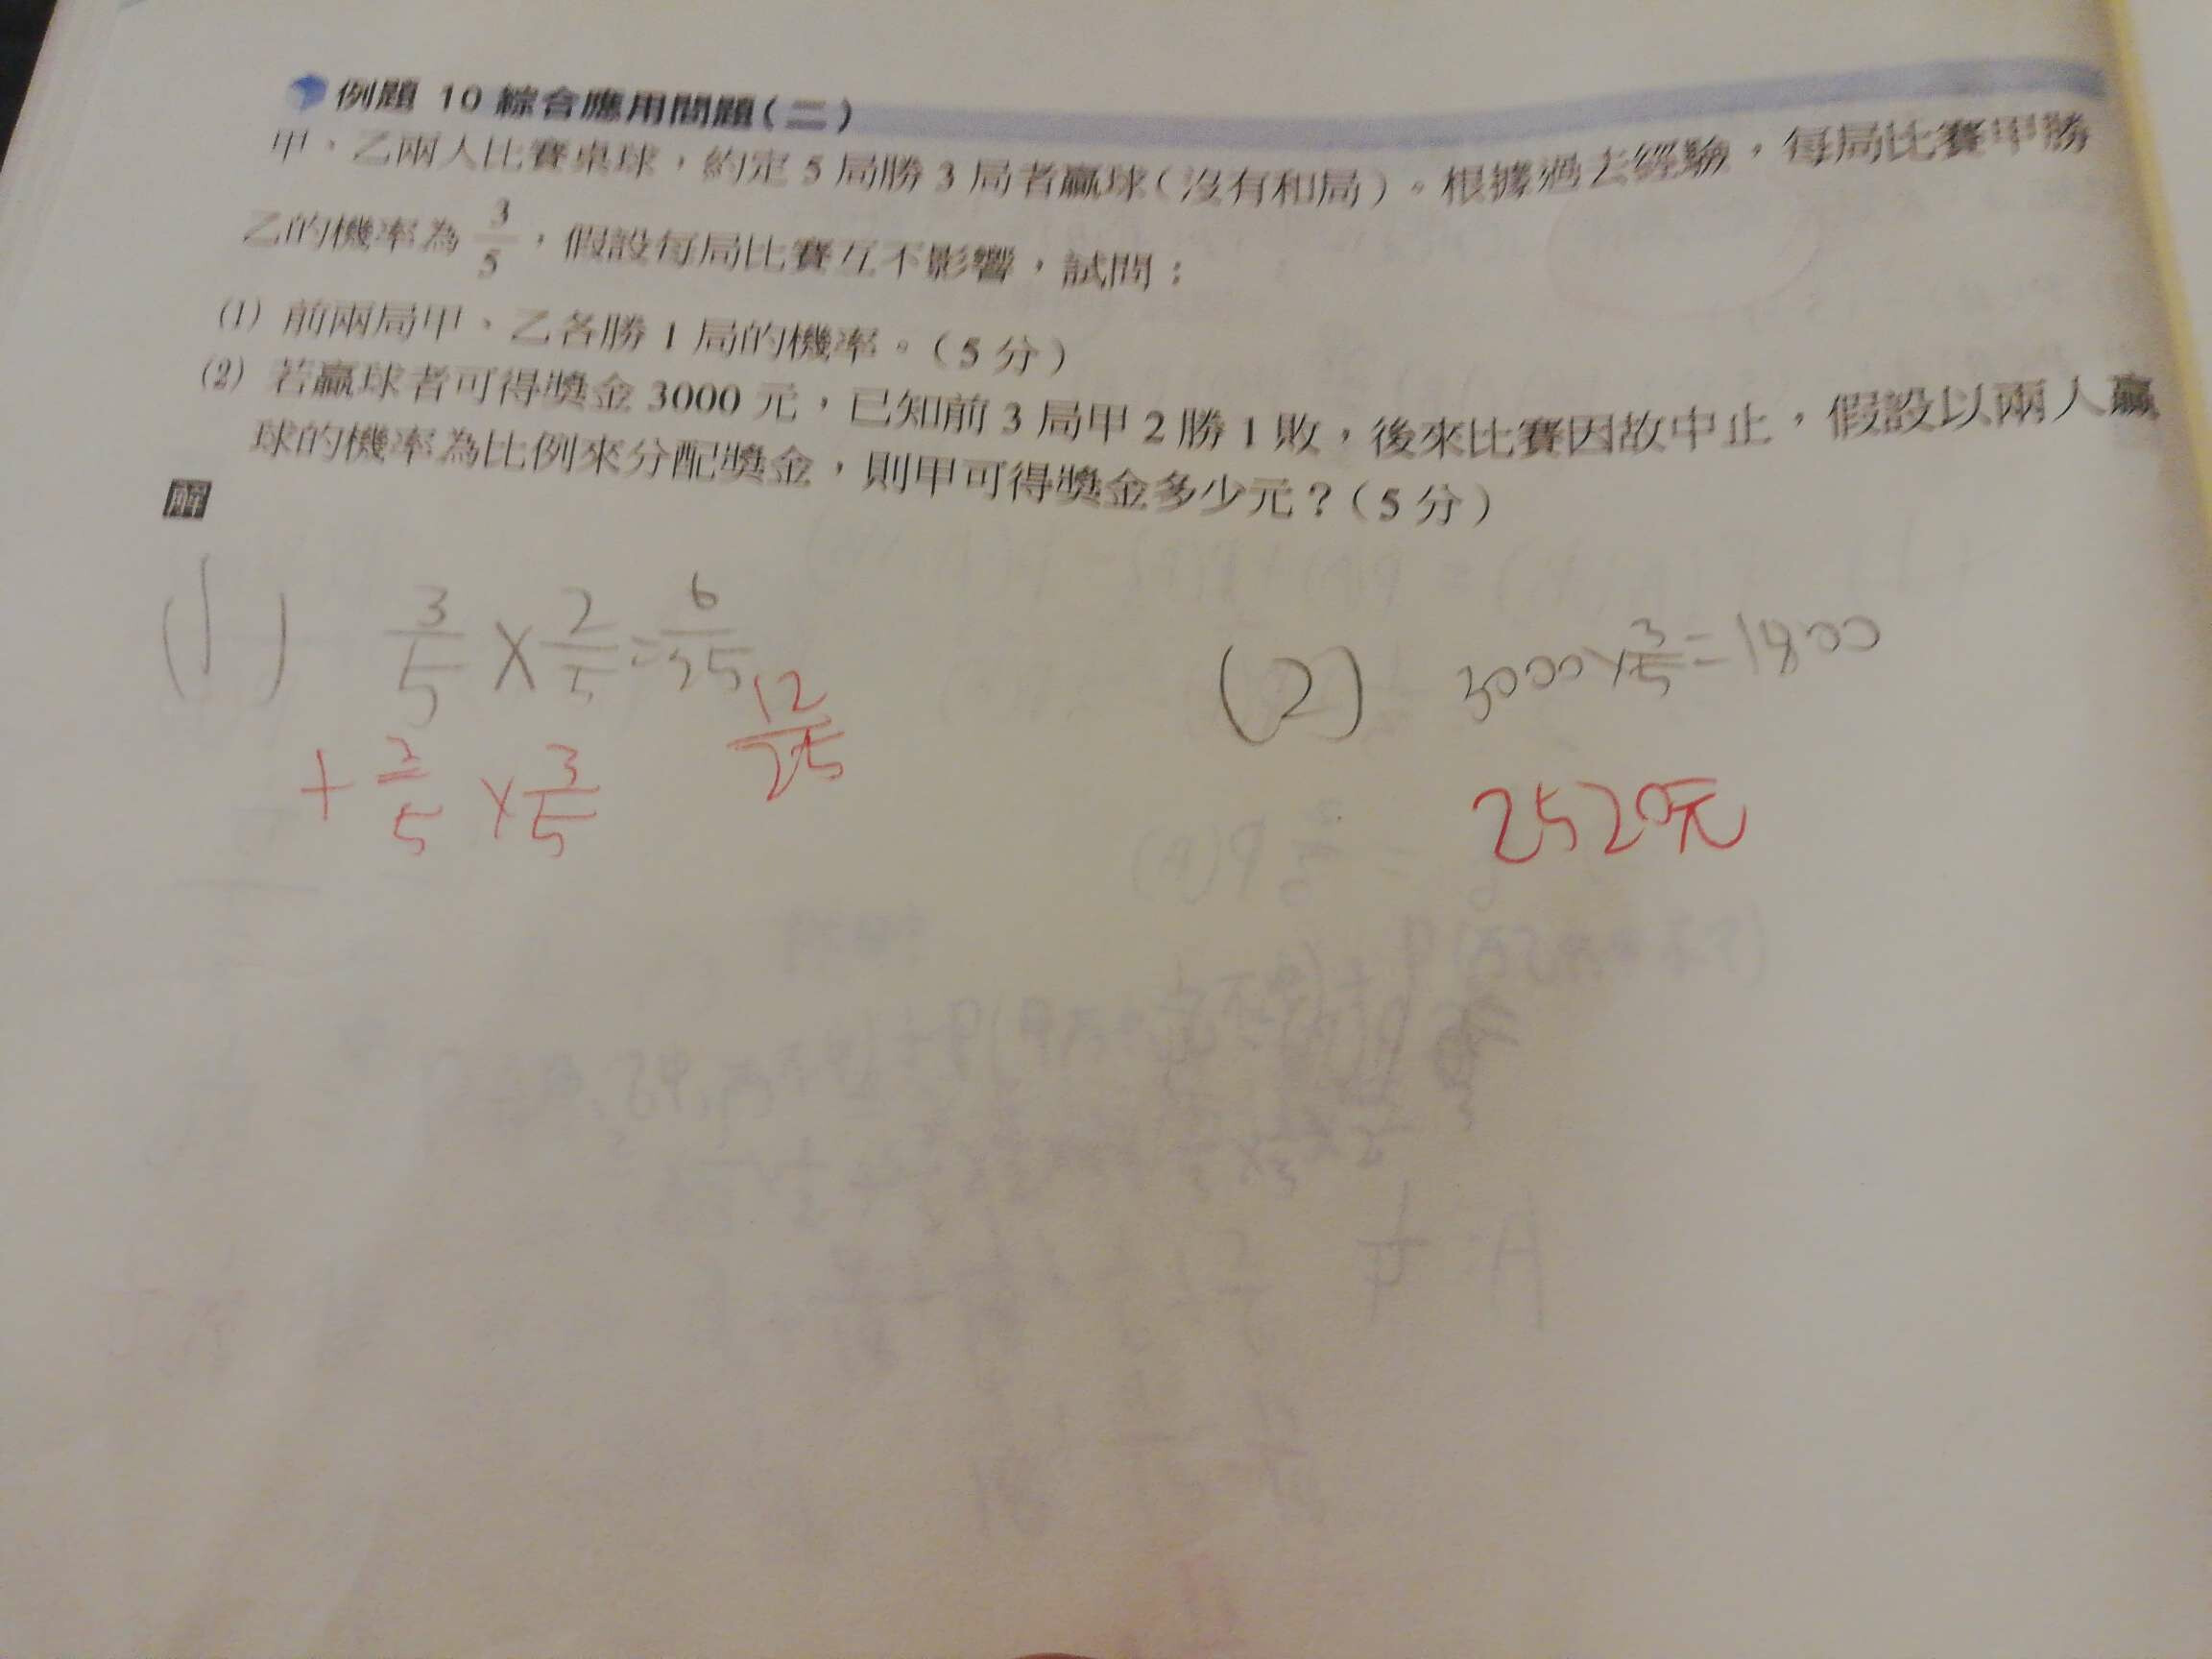 例題 10 綜合應用問題(二)
甲、乙兩人比賽桌球，約定 5 局勝 3 局者贏球(沒有和局)。根據過去經驗，每局比賽甲勝
乙的機率為 3/5，假設每局比賽互不影響，試問：
(1) 前兩局甲、乙各勝 1 局的機率。(5 分)
(2) 若贏球者可得獎金 3000 元，已知前 3 局甲 2 勝 1 敗，後來比賽因故中止，假設以兩人贏
球的機率為比例來分配獎金，則甲可得獎金多少元？(5 分)
解
(1) 3/5 × 2/5 = 6/25
+ 2/5 × 3/5
12/25
(2) 3000 × 3/5 = 1800
2520元